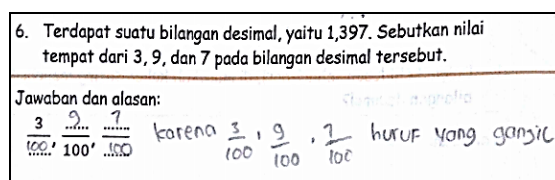 6. Terdapat suatu bilangan desimal, yaitu 1,397. Sebutkan nilai
tempat dari 3, 9, dan 7 pada bilangan desimal tersebut.
Jawaban dan alasan:
3/100, 9/100, 7/100 karena 3/100, 9/100, 7/100 huruf yang ganjil